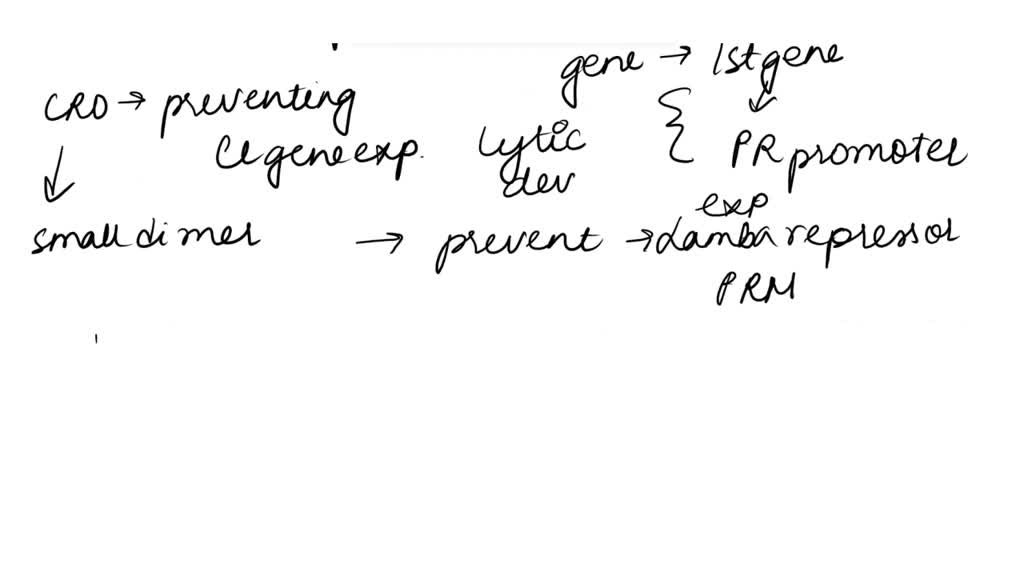 gene → 1st gene
CRO → preventing
CI gene exp. Lytic PR promoter
dev
exp
small dimer → prevent → lamba repressor
PRM